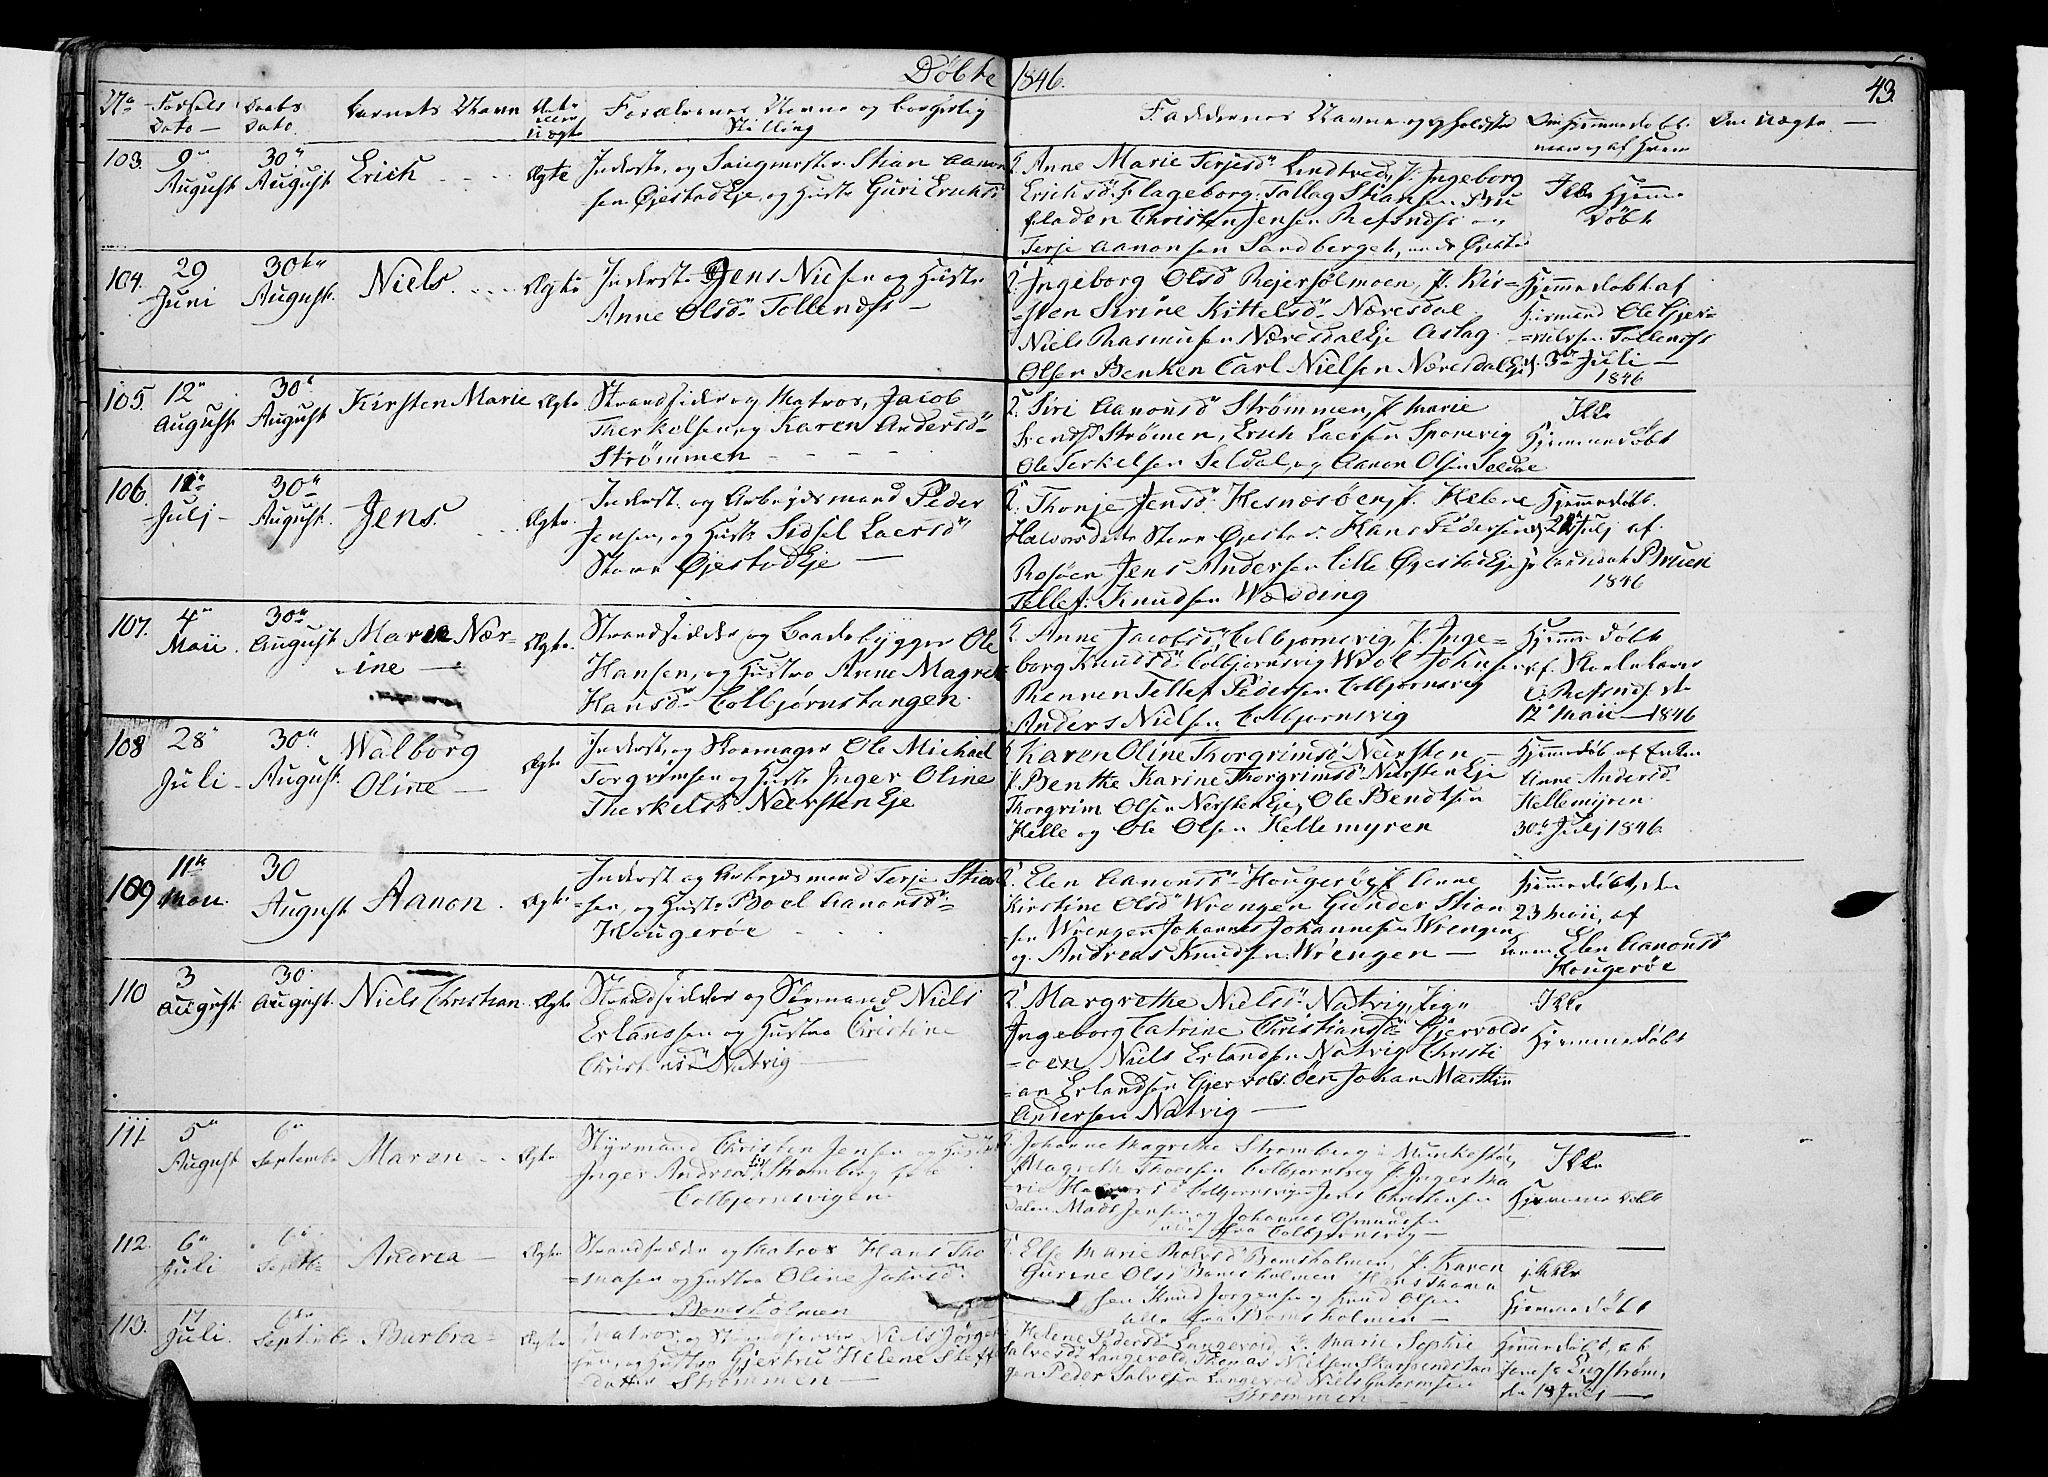 Döbte 1846.
43.
No Fødsels Dato Daabs Dato Barnets Navn Ægte eller Uægte Forældrenes Navne og borgerlig Stilling
Faddernes Navne og Opholdsted Om Hjemmedøbt naar og af hvem Om Uægte
103. 9 August 30 August Erich Ægte
Inderst, og Stian Aanon
sen Øjestad Eje, og Hustr Guri Erichsd
Anne Marie Terjesd Lindtved, P. Ingeborg
Erichsd Flageborg, Tallag Stiansen
fladen Christen Jensen Refsnes og
Terje Aanonsen Sandberget, Øjestad
Ikke Hjemme
Døbt
104. 29 Juni 30te August Niels Ægte
Inderst Jens Nielsen og Hustr
Anne Olsd Tollendsf
Ingeborg Olsd Rejersølmoen, P. Kir-
sten Sirine Kittelsd Næresdal
Niels Rasmusen Næresdal Eje Aslag
Olsen Benken Carl Nielsen Næresdal Eje
Hjemmedøbt af
Ole Gjer-
Tollendsf
3 Juli
1846
105. 12 August 30 August Kirsten Marie Ægte
Strandsidder og Matros, Jacob
Therkelsen, og Karen Andersd
Strømmen
Siri Aanonsd Strømmen, P. Marie
Svendsd Strømen, Erich Laersen Sporevig
Ole Terkelsen Seldal, og Aanon Olsen Seldal
Ikke
Hjemmedøbt
106. 11 Julj 30 August Jens. Ægte.
Inderst og Arbejdsmand Peder
Jensen, og Hustr Sidsel Laersd
Store Øjestad Eje
Thonje Jensd Hesnæsøen, P. Helene
Halvorsdatter Store Øjestad, Hans Pedersen
Rosøen Jens Andersen lille Øjestad Eje
Tellef Knudsen Wedding
Hjemmedøbt
21 Julj af
Candidat Bruun
1846
107. 4 Maii 30 August Maren Nær-
ine Ægte.
Strandsidder og Baadebygger Ole
Hansen, og Hustru Anne Magret
Hansd Colbjørnstangen.
Anne Jacobsd Colbjørnsvig, P. Inge-
borg Knudsd Colbjørnsvig Johnsen
Rennen Tellef Pedersen Colbjørnsvig
Anders Nielsen Colbjørnsvig
Hjemme Døbt
af Skolelærer
Refsnes de
12 Maii 1846
108 28 Juli 30 August. Walborg
Oline Ægte
Inderst, og Skomager Ole Michael
Torgrimsen og Hustr Inger Oline
Therkelsd Neersten Eje
Karen Oline Thorgrimsd Neersten
P. Benthe Karine Thorgrimsd Neersten Eje
Thorgrim Olsen Nersten Eje, Ole Bendtsen
Helle og Ole Olsen Hellemyren
Hjemmedøb af Enken
Anne Andersd
Hellemyren
30 Julj 1846.
109 11te Maii. 30 August Aanon. Ægte
Inderst og Arbejdsmand Terje Stian
sen, og Hustr Boel Aanonsd
Hougerøe
Elen Aanonsd Hougerøe P. Anne
Kirstine Olsd Wrengen Gunder Stian
sen Wrengen Johannes Johannesen Wrengen
og Andreas Knudsen Wrengen
Hjemmedøbt, den
23 Maii, af
Elen Aanonsd
Hougerøe
110 3 August 30 August. Niels Christian Ægte
Strandsidder og Sømand Niels
Erlansen og Hustru Christine
Christ Natvig
Margrethe Nielsd Natvig, Pig
Ingeborg Catrine Christiansd Gjervolds
oen Niels Erlandsen Natvig Christi
an Erlandsen Gjervolsøen Johan Martin
Andersen Natvig
Ikke
Hjemmedøbt
111 5 August 6 Septemb Maren Ægte
Styrmand Christen Jensen og Hustr
Inger Andrea Stromberg
Colbjornsvigen
Johanne Magrethe Stromberg
Magreth Colbjornsvig P. Inger Ma
rie Colbjornsvigen Jens Christensen
Dalen Mads Jensen og Johannes Asmundsen
alle fra Colbjornsvig
Ikke
Hjemme døbt
112. 6 Juli 6 Septb Andrea Ægte
Strandsidder og Matros Hans Tho
masen og Hustru Oline Johnsd
Bomsholmen
Else Marie Bomsholmen, P. Karen
Gurine Olsd Bomsholmen Hans Thoma
sen Knud Jorgensen og Knud Olsen
alle fra Bomsholmen
ikke
Hjemmedøbt
113. 17 Juli. 6te Septemb Barbra Ægte
Matros og Strandsidder Niels Jørgen
sen, og Hustru Gjertru Helene Steff
datter Strømmen
Helene Pedersd Langevold, P. Marie Sophie
Salvesd Langevold, Thomas Nielsen
Peder Salvesen Langevold Niels Guttormsen
Strømmen
Hjemmedøbt, af
Engstrøm,
den 19 Juli